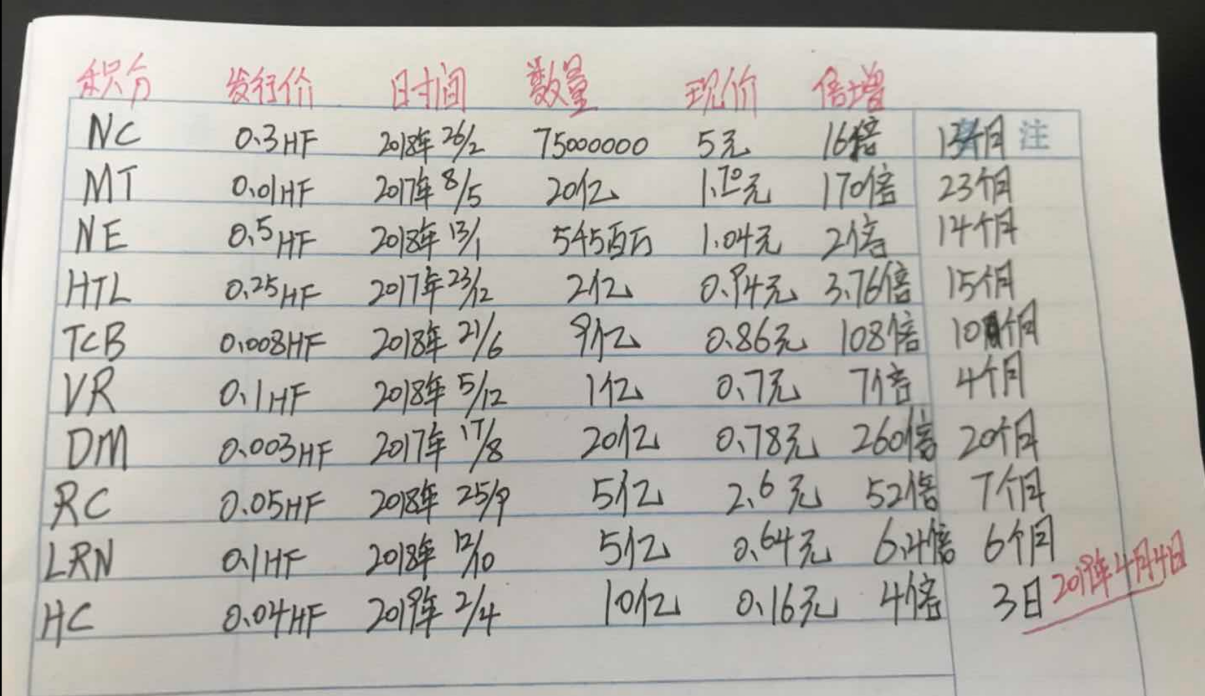 积分 发行价 日时间 数量 现价 倍增
NC 0.3HF 2018年26/2 75000000 5元 16倍 13个月 注
MT 0.01HF 2017年8/5 20亿 1.70元 170倍 23个月
NE 0.5HF 2018年13/1 545百万 1.04元 2倍 14个月
HTL 0.25HF 2017年23/12 2亿 0.94元 3.76倍 15个月
TCB 0.008HF 2018年21/6 9亿 0.86元 108倍 10个月
VR 0.1HF 2018年5/12 1亿 0.7元 7倍 4个月
DM 0.003HF 2017年17/8 20亿 0.78元 260倍 20个月
RC 0.05HF 2018年25/9 5亿 2.6元 52倍 7个月
LRN 0.1HF 2018年12/10 5亿 0.64元 6.4倍 6个月
HC 0.04HF 2019年2/4 10亿 0.16元 4倍 3日 2019年4月4日